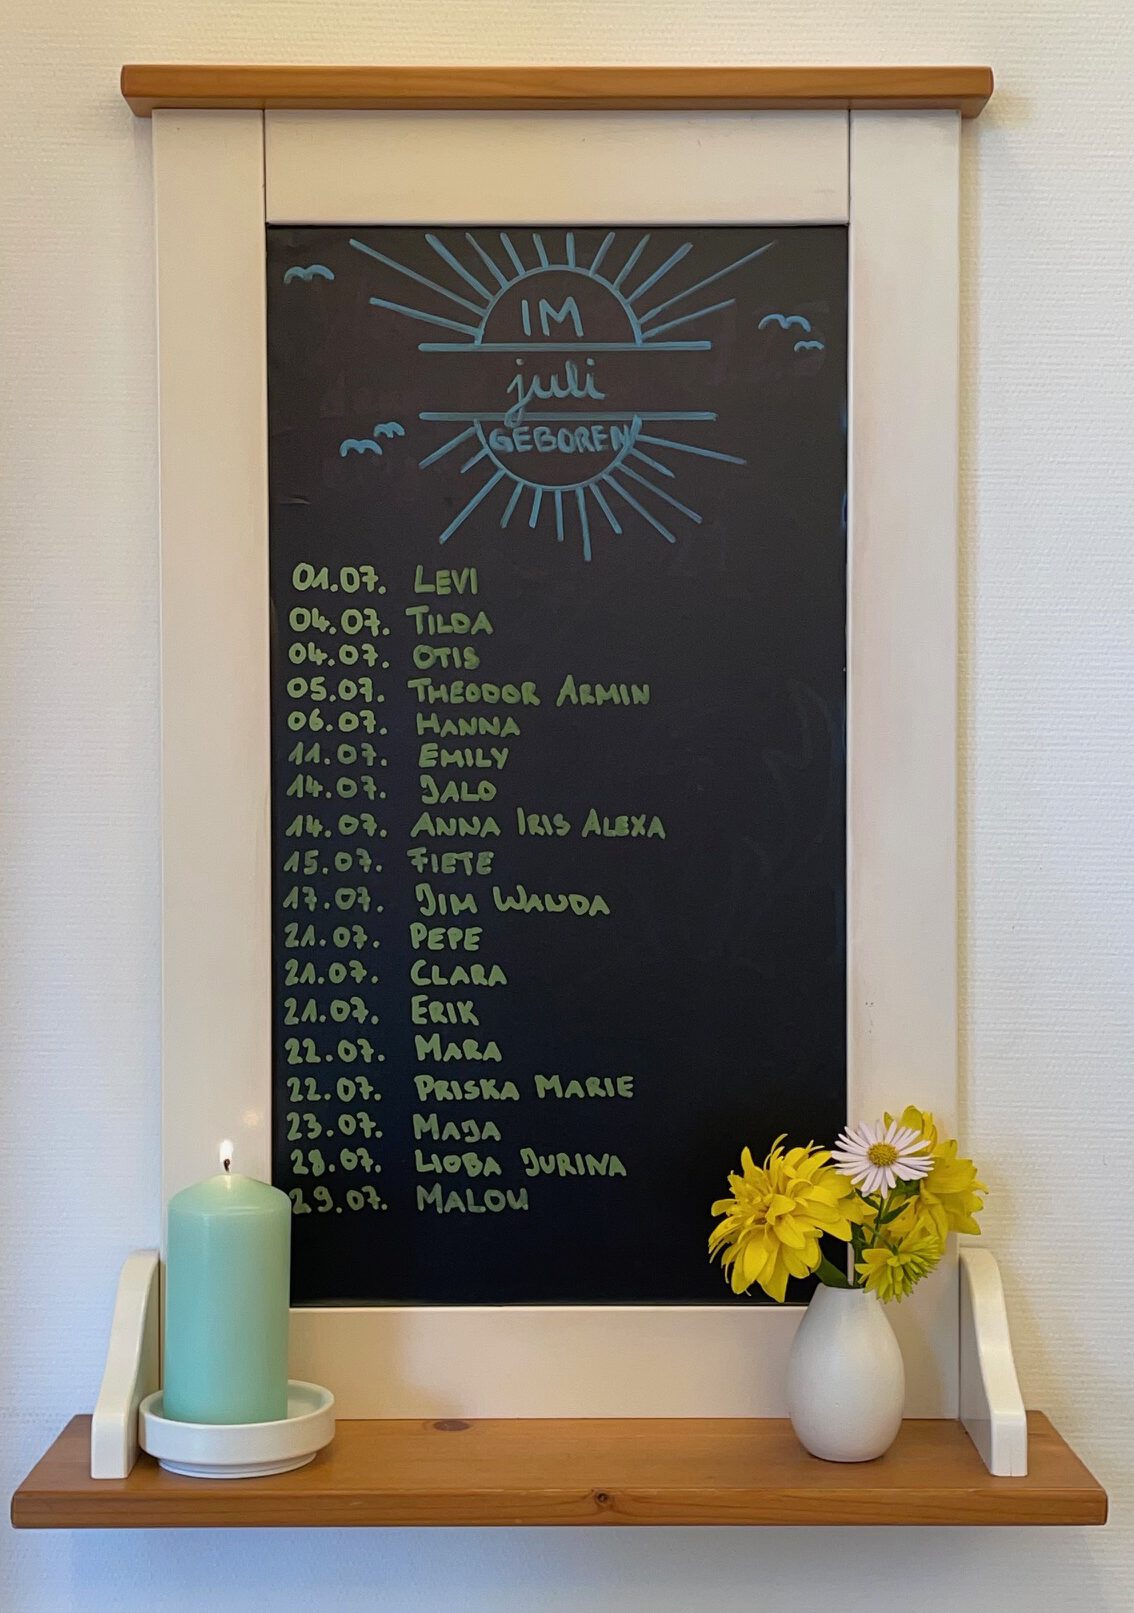 IM
juli
GEBOREN
01.07. LEVI
04.07. TILDA
04.07. OTIS
05.07. THEODOR ARMIN
06.07. HANNA
11.07. EMILY
14.07. JALO
14.07. ANNA IRIS ALEXA
15.07. FIETE
17.07. JIM WANDA
21.07. PEPE
21.07. CLARA
21.07. ERIK
22.07. MARA
22.07. PRISKA MARIE
23.07. MAJA
28.07. LIOBA JURINA
29.07. MALOU